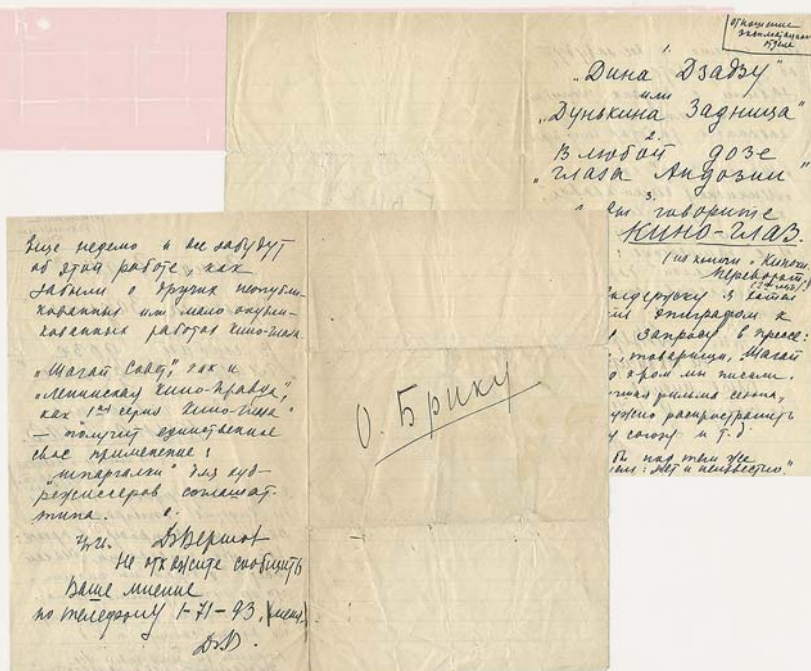 отношение
эксплоатацион.
отдела
1.
„Дина Дзадзу”
или
„Дунькина Задница”
2.
В любой дозе
„глаза Андозии”
3.
вы говорите
КИНО-ГЛАЗ.
(из книги „Киноки.
Переворот”
эпиграфом к
запросу в прессе:
, товарищи, Шагай
о кром мы писали.
фильма сезона,
нужно распространить
союзу и т.д
бы под тем же
: нет и неизвестно.”
Еще неделю и все забудут
об этой работе, как
забыли о других неопубли-
кованных или мало опубли-
кованных работах Кино-глаза.
„Шагай Совет”, как и
„Ленинская Кино-Правда”,
как 1ая серия Кино-Глаза”
— получит единственное
свое применение:
„шпаргалки” для
режиссеров соглашат.
типа.
Д Вертов
Не откажите сообщить
Ваше мнение
по телефону 1-71-93.
ДВ.
О. Брику